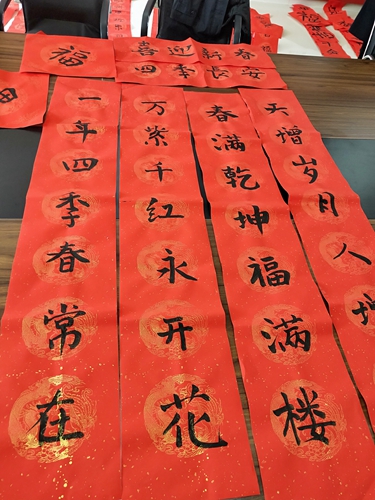 福
喜迎新春
四季长安
一年四季春常在
万紫千红永开花
春满乾坤福满楼
天增岁月人增